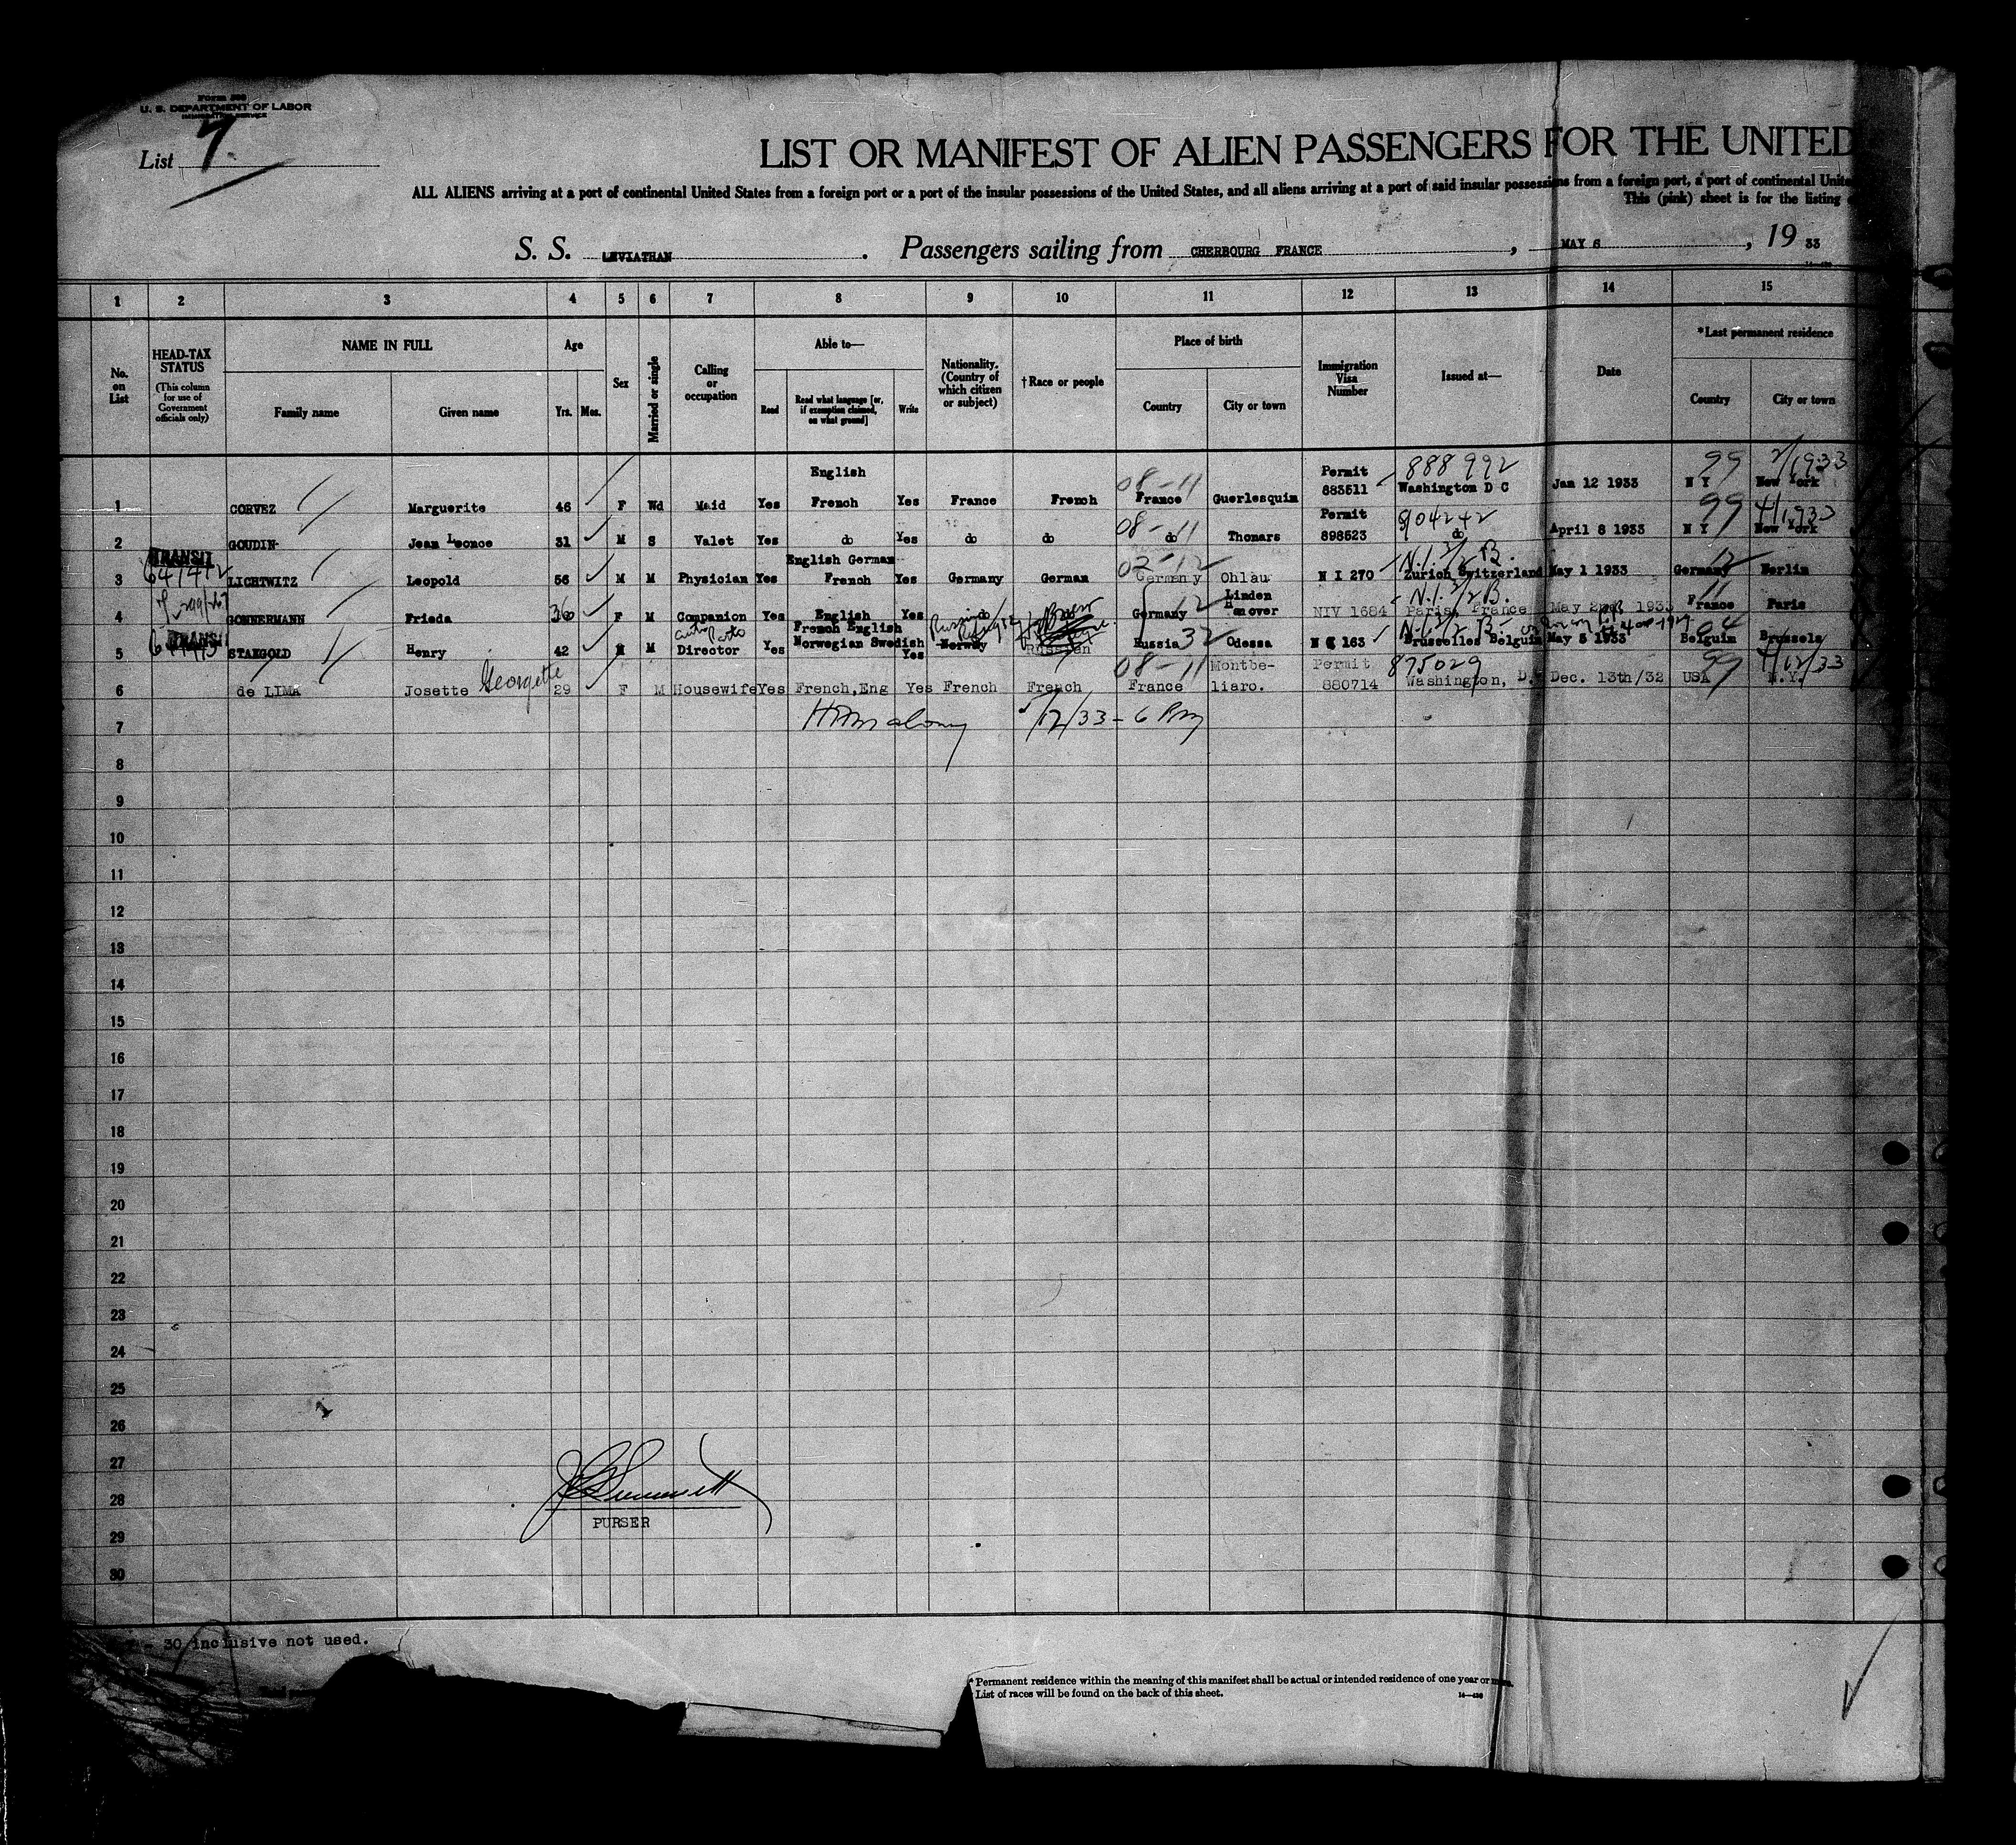 Form 500
U. S. DEPARTMENT OF LABOR
IMMIGRATION SERVICE
List 7
LIST OR MANIFEST OF ALIEN PASSENGERS FOR THE UNITED
ALL ALIENS arriving at a port of continental United States from a foreign port or a port of the insular possessions of the United States, and all aliens arriving at a port of said insular possessions from a foreign port, a port of continental Unite
This (pink) sheet is for the listing
S. S. LEVIATHAN. Passengers sailing from CHERBOURG FRANCE, MAY 6, 19 33
1 2 3 4 5 6 7 8 9 10 11 12 13 14 15
No. on List
HEAD-TAX STATUS (This column for use of Government officials only)
NAME IN FULL
Family name Given name
Age
Yrs. Mos.
Sex
Married or single
Calling or occupation
Able to—
Read Read what language [or, if exemption claimed, on what ground] Write
Nationality. (Country of which citizen or subject)
†Race or people
Place of birth
Country City or town
Immigration Visa Number
Issued at—
Date
*Last permanent residence
Country City or town
English Permit 888992 99 2/1933
1 CORVEZ Marguerite 46 F Wd Maid Yes French Yes France French 08-11 France Guerlesquin 883511 Washington D C Jan 12 1933 N Y New York
Permit 904242 99 4/1933
2 GOUDIN Jean Leonce 31 M S Valet Yes do Yes do do 08-11 do Thonars 898523 do April 8 1933 N Y New York
TRANSIT English German 02-12 N.I. 3/2 B. 12
3 641412 LICHTWITZ Leopold 56 M M Physician Yes French Yes Germany German Germany Ohlau N I 270 Zurich Switzerland May 1 1933 Germany Berlin
Linden N.I. 3/2 B. 11
4 GONNERMANN Frieda 36 F M Companion Yes English Yes do do Germany 12 Hanover NIV 1684 Paris, France May 2nd 1933 France Paris
TRANSIT auto parts French English Russian N.I. 3/2 B. 04
5 STAKGOLD Henry 42 M M Director Yes Norwegian Swedish Yes Norway Russian Russia 32 Odessa N I 163 Bruselles Belguim May 5 1933 Belguim Brussels
Georgette 08-11 Montbe- Permit 875029 99 4/12/33
6 de LIMA Josette 29 F M Housewife Yes French,Eng Yes French French France liaro. 880714 Washington, D. Dec. 13th/32 USA N.Y.
7 5/12/33 - 6 Pm
8
9
10
11
12
13
14
15
16
17
18
19
20
21
22
23
24
25
26
27
28
PURSER
29
30
- 30 inclusive not used.
* Permanent residence within the meaning of this manifest shall be actual or intended residence of one year or more.
List of races will be found on the back of this sheet.